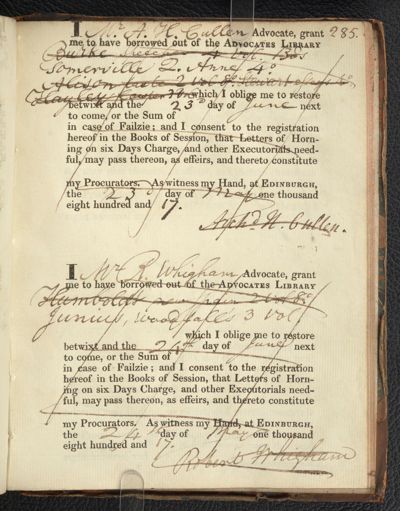 285.
I Mr A. H. Cullen Advocate, grant
me to have borrowed out of the ADVOCATES LIBRARY
Burke 4 vol.
Somerville Q. Anne 4o
Alison 2 vol
Hayley which I oblige me to restore
betwixt and the 23d day of June next
to come, or the Sum of
in case of Failzie; and I consent to the registration
hereof in the Books of Session, that Letters of Horn-
ing on six Days Charge, and other Executorials need-
ful, may pass thereon, as effeirs, and thereto constitute
my Procurators. As witness my Hand, at EDINBURGH,
the 23d day of May one thousand
eight hundred and 17.
Archd H. Cullen.
I Mr R. Whigham Advocate, grant
me to have borrowed out of the ADVOCATES LIBRARY
Humboldt 2 vol 8o
Junius, Woodfall's 3 vol
which I oblige me to restore
betwixt and the 24th day of June next
to come, or the Sum of
in case of Failzie; and I consent to the registration
hereof in the Books of Session, that Letters of Horn-
ing on six Days Charge, and other Executorials need-
ful, may pass thereon, as effeirs, and thereto constitute
my Procurators. As witness my Hand, at EDINBURGH,
the 24th day of May one thousand
eight hundred and 17.
Robert Whigham